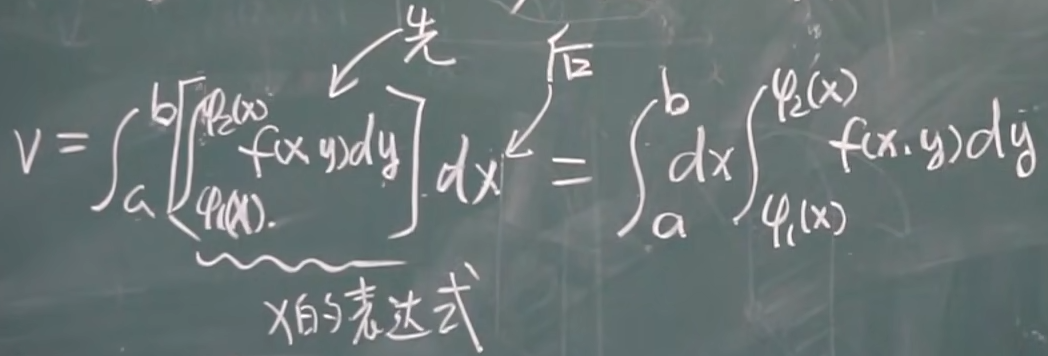 先 后
V = ∫_a^b [∫_{φ₁(x)}^{φ₂(x)} f(x y)dy] dx = ∫_a^b dx ∫_{φ₁(x)}^{φ₂(x)} f(x,y)dy
x的表达式